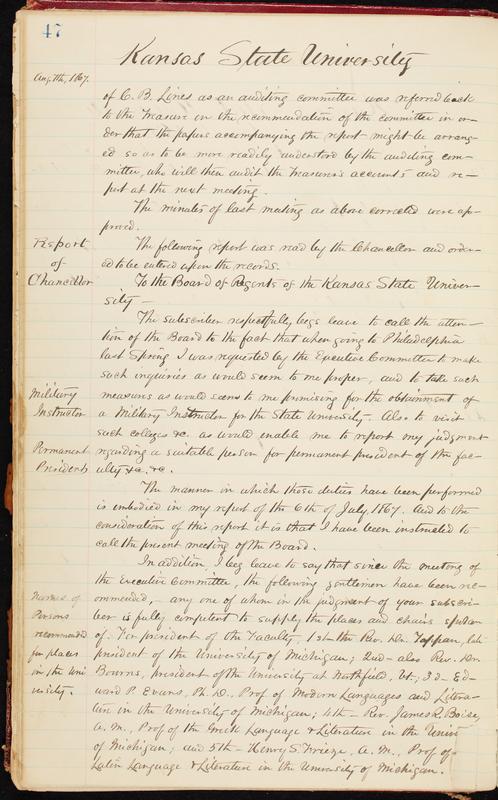 47
Kansas State University
Aug. 7th, 1867.
of C. B. Lines as an auditing committee was referred back
to the Treasurer in the recommendation of the committee in or-
der that the papers accompanying the report might be arrang-
ed so as to be more readily understood by the auditing com-
mittee, who will then audit the Treasurer's accounts and re-
port at the next meeting.
The minutes of last meeting as above corrected were ap-
proved.
Report
of
Chancellor
The following report was read by the Chancellor and order-
ed to be entered upon the records.
To the Board of Regents of the Kansas State Univer-
sity —
The subscriber respectfully begs leave to call the atten-
tion of the Board to the fact that when going to Philadelphia
last Spring I was requested by the Executive Committee to make
such inquiries as would seem to me proper, and to take such
measures as would seem to me promising for the obtainment of
Military
Instructor
a Military Instructor for the State University. Also to visit
such colleges &c. as would enable me to report my judgment
Permanent
President
regarding a suitable person for permanent president of the fac-
ulty &c., &c.
The manner in which those duties have been performed
is embodied in my report of the 6th of July, 1867. And to the
consideration of this report it is that I have been instructed to
call the present meeting of the Board.
In addition, I beg leave to say that since the meeting of
the Executive Committee, the following gentlemen have been rec-
Names of
Persons
recommended
for places
in the Uni
versity.
ommended, — any one of whom in the judgment of your subscri-
ber is fully competent to supply the places and chairs spoken
of. For president of the Faculty, 1st — the Rev. Dr. Tappan, late
president of the University of Michigan; 2nd — also Rev. Dr.
Bourns, president of the University at Northfield, Vt.; 3d — Ed-
ward P. Evans, Ph. D., Prof of Modern Languages and Litera-
ture in the University of Michigan; 4th — Rev. James R. Boise,
A. M., Prof of the Greek Language & Literature in the Univ.
of Michigan; and 5th — Henry S. Frieze, A. M., Prof of
Latin Language & Literature in the University of Michigan.